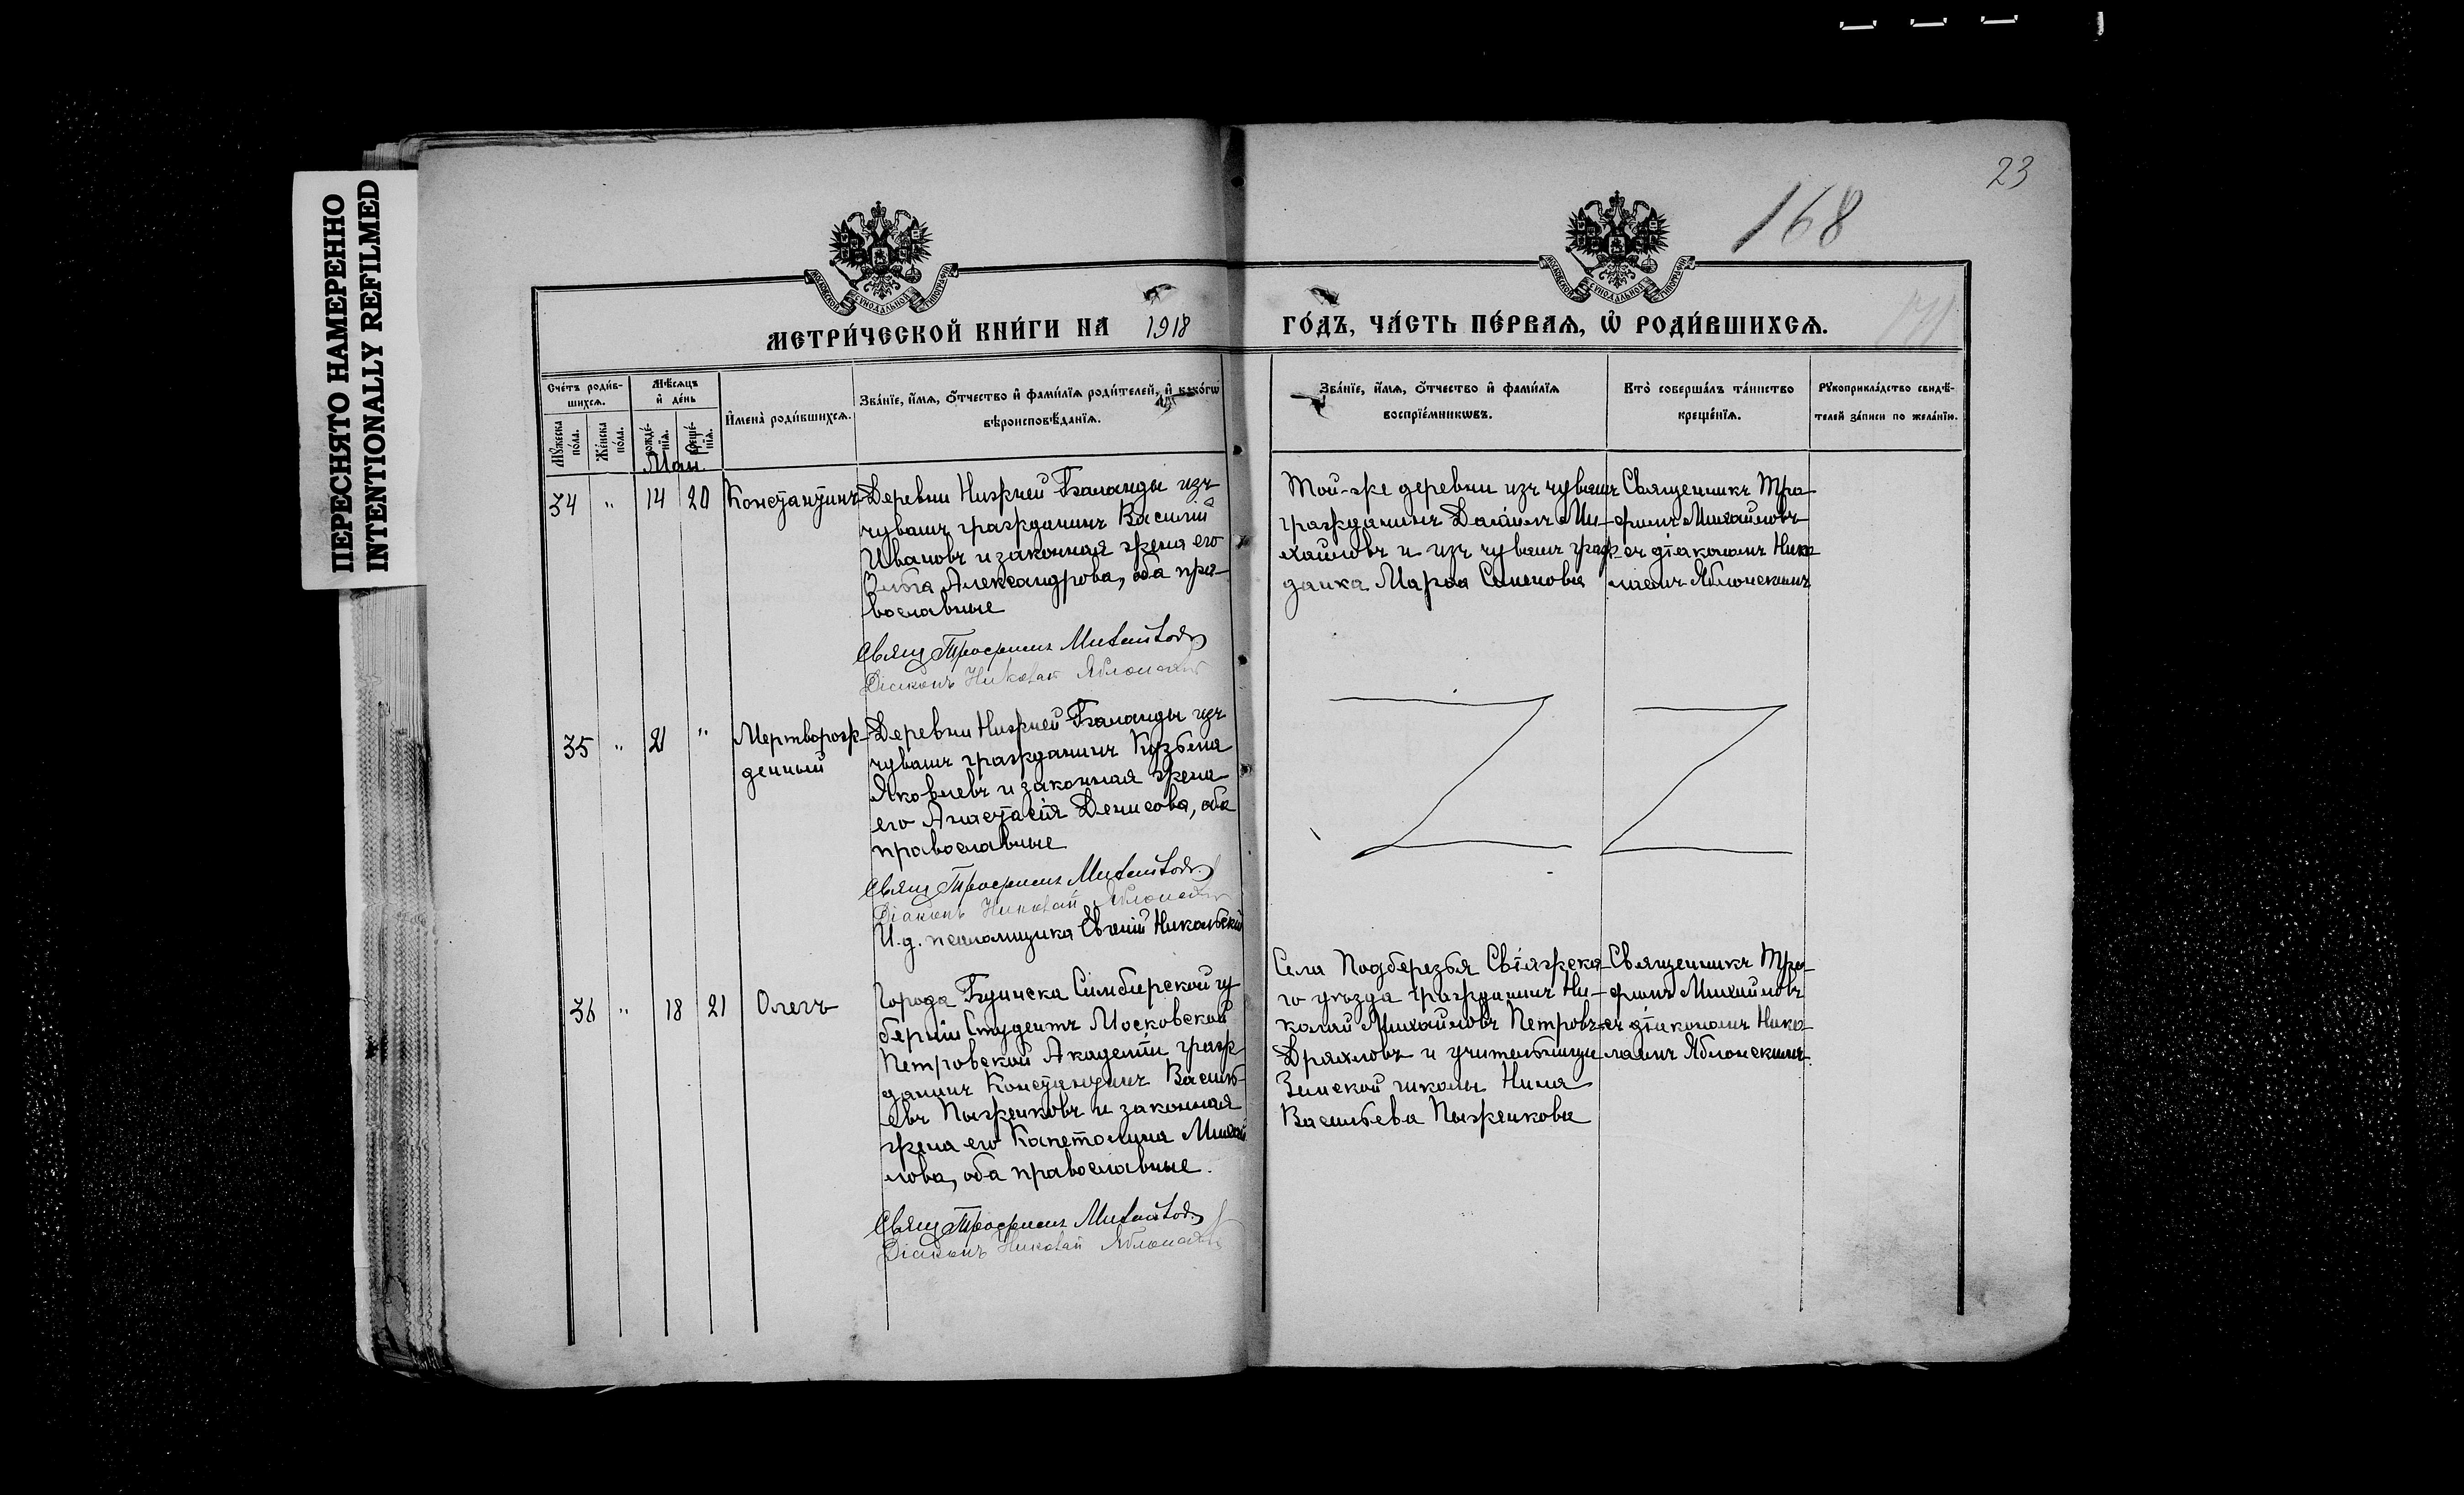 ПЕРЕСНЯТО НАМЕРЕННО
INTENTIONALLY REFILMED
23
168
МЕТРИ́ЧЕСКОЙ КНИ́ГИ НА 1918
ГО́ДЪ, ЧА́СТЬ ПЕ́РВАѦ, Ѡ҆ РОДИ́ВШИХСѦ.
Сче́тъ роди́в-
шихсѧ.
Мꙋ́жеска по́ла.
Же́нска по́ла.
Мѣ́сѧцъ
и҆ де́нь
рожде́-
нїѧ.
креще́-
нїѧ.
И҆мена̀ роди́вшихсѧ.
Зва́нїе, и҆́мѧ, ѻ҆́тчество и҆ фами́лїѧ роди́телей, и҆ како́гѡ
вѣроисповѣ́данїѧ.
Зва́нїе, и҆́мѧ, ѻ҆́тчество и҆ фами́лїѧ
воспрїе́мникѡвъ.
Кто̀ соверша́лъ та́инство
креще́нїѧ.
Рꙋкоприкла́дство свидѣ́-
телей за́писи по жела́нїю.
Май.
34 " 14 20 Константинъ
Деревни Нижней Баланды изъ
чувашъ гражданинъ Василий
Ивановъ и законная жена его
Александрова, оба пра-
вославные
Свящ Трофимъ Михайловъ
Діаконъ Николай Яблонскій
Той-же деревни изъ чувашъ
гражданинъ Даніилъ Ми-
хайловъ и изъ чувашъ граж-
данка Марѳа Семенова
Священникъ Тро-
фимъ Михайловъ
съ діакономъ Нико
лаемъ Яблонскимъ
35 " 21 " Мертворож-
денный
Деревни Нижней Баланды изъ
чувашъ гражданинъ Кузьма
Яковлевъ и законная жена
его Анастасія Денисова, оба
православные
Свящ Трофимъ Михайловъ
Діаконъ Николай Яблонскій
И.д. псаломщика Евгеній Никольскій
36 " 18 21 Олегъ
Города Буинска Симбирской гу
берніи Студентъ Московской
Петровской Академіи граж
данинъ Константинъ Василь-
евъ Пыженковъ и законная
жена его Капетолина Михай
лова, оба православные.
Свящ Трофимъ Михайловъ
Діаконъ Николай Яблонскій
Села Подберезья Свіяжска-
го уѣзда гражданинъ Ни-
колай Михайловъ Петровъ-
Дряхловъ и учительница
Земской школы Нина
Васильева Пыженкова
Священникъ Тро-
фимъ Михайловъ
съ діакономъ Нико-
лаемъ Яблонскимъ.